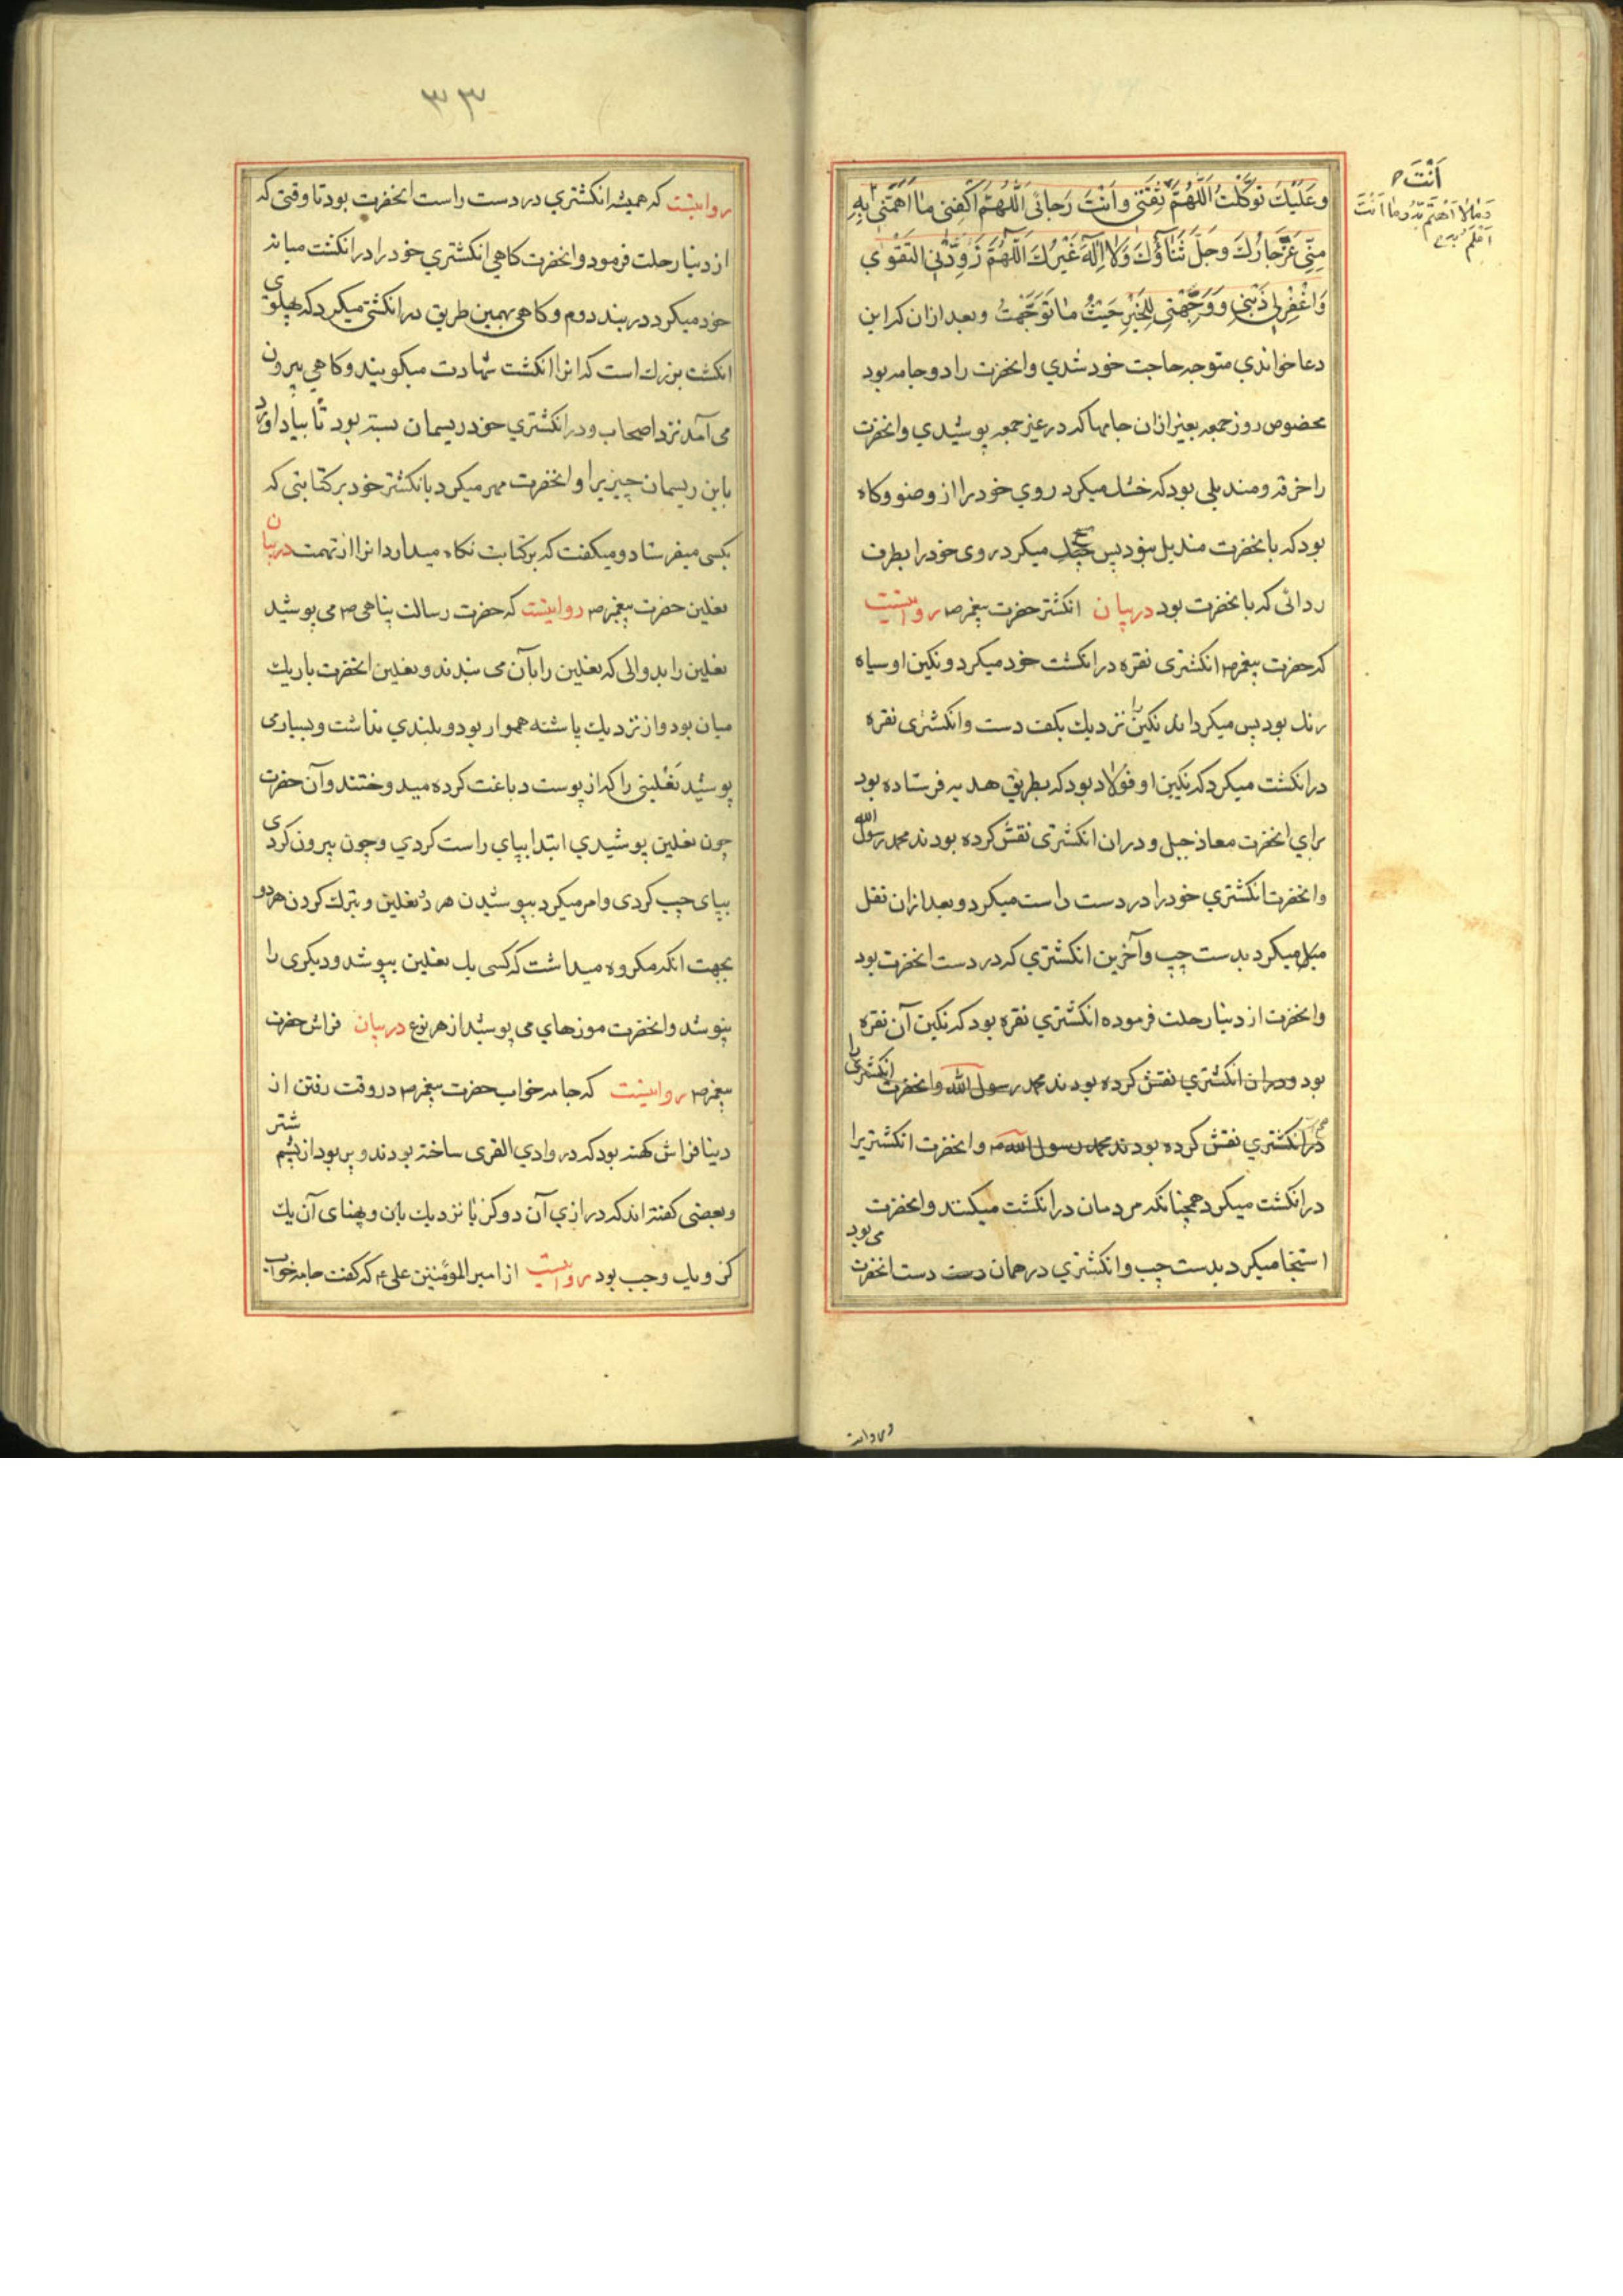 وَعَلَيْكَ تَوَكَّلْتُ اَللّٰهُمَّ ثِقَتِي وَاَنْتَ رَجَائِي اَللّٰهُمَّ اكْفِنِي مَا اَهَمَّنِي بِهِ
اَنْتَ
وَمَا لَا اَهْتَمُّ بِهِ وَمَا اَنْتَ
اَعْلَمُ بِهِ
مِنِّي عَزَّ جَارُكَ وَجَلَّ ثَنَاؤُكَ وَلَا اِلٰهَ غَيْرُكَ اَللّٰهُمَّ زَوِّدْنِي التَّقْوٰي
وَاغْفِرْ لِي ذَنْبِي وَوَجِّهْنِي لِلْخَيْرِ حَيْثُ مَا تَوَجَّهْتُ وبعد ازان که این
دعا خواندي متوجه حاجت خود شدي وانحضرت را دو جامه بود
مخصوص روز جمعه بغیر ازان جامها که در غیر جمعه پوشیدي وانحضرت
را خرقه ومندیلی بود که خشك میکرد روي خود را از وضو وکاه
بود که با انحضرت مندیل نبود پس میکرد روی خود را بطرف
ردائی که با نحضرت بود در بیان انکشتر حضرت پیغمبر ص روایتست
که حضرت پیغمبر ص انکشتری نقره در انکشت خود میکرد ونکین او سیاه
رنك بود پس میکرداند نکین را نزدیك بکف دست وانکشتری نقره
در انکشت میکرد که نکین او فولاد بود که بطریق هدیه فرستاده بود
براي انحضرت معاذ جبل ودران انکشتری نقش کرده بودند محمد رسول الله
وانحضرت انکشتري خود را در دست راست میکرد وبعد ازان نقل
میکرد بدست چپ وآخرین انکشتري که در دست انحضرت بود
وانحضرت از دنیا رحلت فرموده انکشتري نقره بود که نکین آن نقره
بود ودران انکشتري نقش کرده بودند محمد رسول الله وانحضرت انکشتری را
در انکشتري نقش کرده بودند محمد رسول الله ص وانحضرت انکشتریرا
در انکشت میکرد همچنانکه مردمان در انکشت میکنند وانحضرت
استنجا میکرد بدست چپ وانکشتري در همان دست دست انحضرت می بود
۳۳
روایتست که همیشه انکشتري در دست راست انحضرت بود تا وقتی که
از دنیا رحلت فرمود وانحضرت کاهي انکشتري خود را در انکشت میانه
خود میکرد در بند دوم وکاهی بهمین طریق در انکشتی میکرد که پهلوی
انکشت بزرك است که انرا انکشت شهادت میکویند وکاهي بیرون
می آمد نزد اصحاب ودر انکشتري خود ریسمان بسته بود تا بیاد اورد
باین ریسمان چیزیرا وانحضرت مهر میکرد بانکشتر خود بر کتابتی که
بکسی میفرستاد ومیکفت که بر کتابت نکاه میدارد انرا از تهمت در بیان
نعلین حضرت پیغمبر ص روایتست که حضرت رسالت پناهی ص می پوشید
نعلین را بدوالی که نعلین را بآن می بندند ونعلین انحضرت باریك
میان بود واز نزدیك پاشنه هموار بود وبلندي نداشت وبسیاری
پوشید نعلینی را که از پوست دباغت کرده میدوختند وآن حضرت
چون نعلین پوشیدي ابتدا بپاي راست کردي وچون بیرون کردی
بپای چپ کردی وامر میکرد بپوشیدن هر دو نعلین وبترك کردن هر دو
بجهت انکه مکروه میداشت که کسی یك نعلین بپوشد ودیکری را
نپوشد وانحضرت موزهاي می پوشید از هر نوع در بیان فراش حضرت
پیغمبر ص روایتست که جامه خواب حضرت پیغمبر ص در وقت رفتن از
دنیا فراش کهنه بود که در وادي القری ساخته بودند وپر بود از پشم شتر
وبعضی کفته اند که درازي آن دو کز یا نزدیك بآن وپهنای آن یك
کز ویك وجب بود روایتست از امیر المؤمنین علی ع که کفت جامه خواب